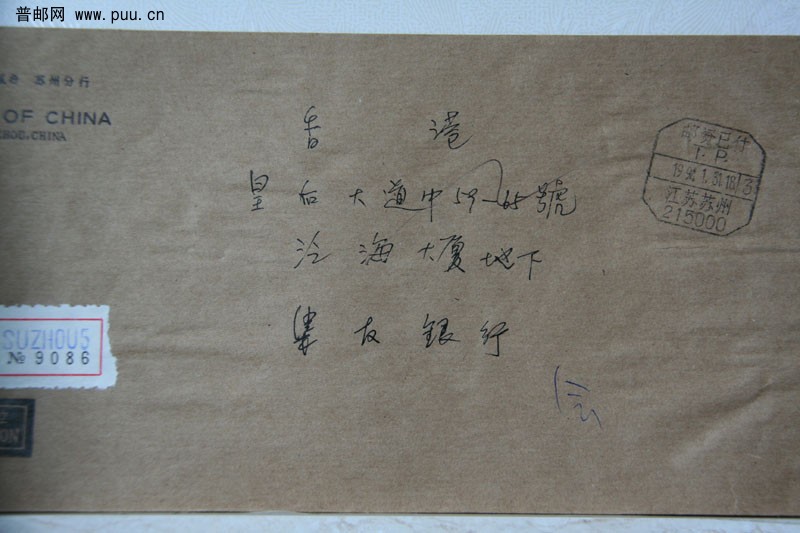 普邮网 www.puu.cn
苏州分行
OF CHINA
HOU.CHINA
香 港
皇后大道中59-65號
泛海大厦地下
友銀行
邮资已付
T.P.
江苏苏州
215000
SUZHOU5
№ 9086
ON